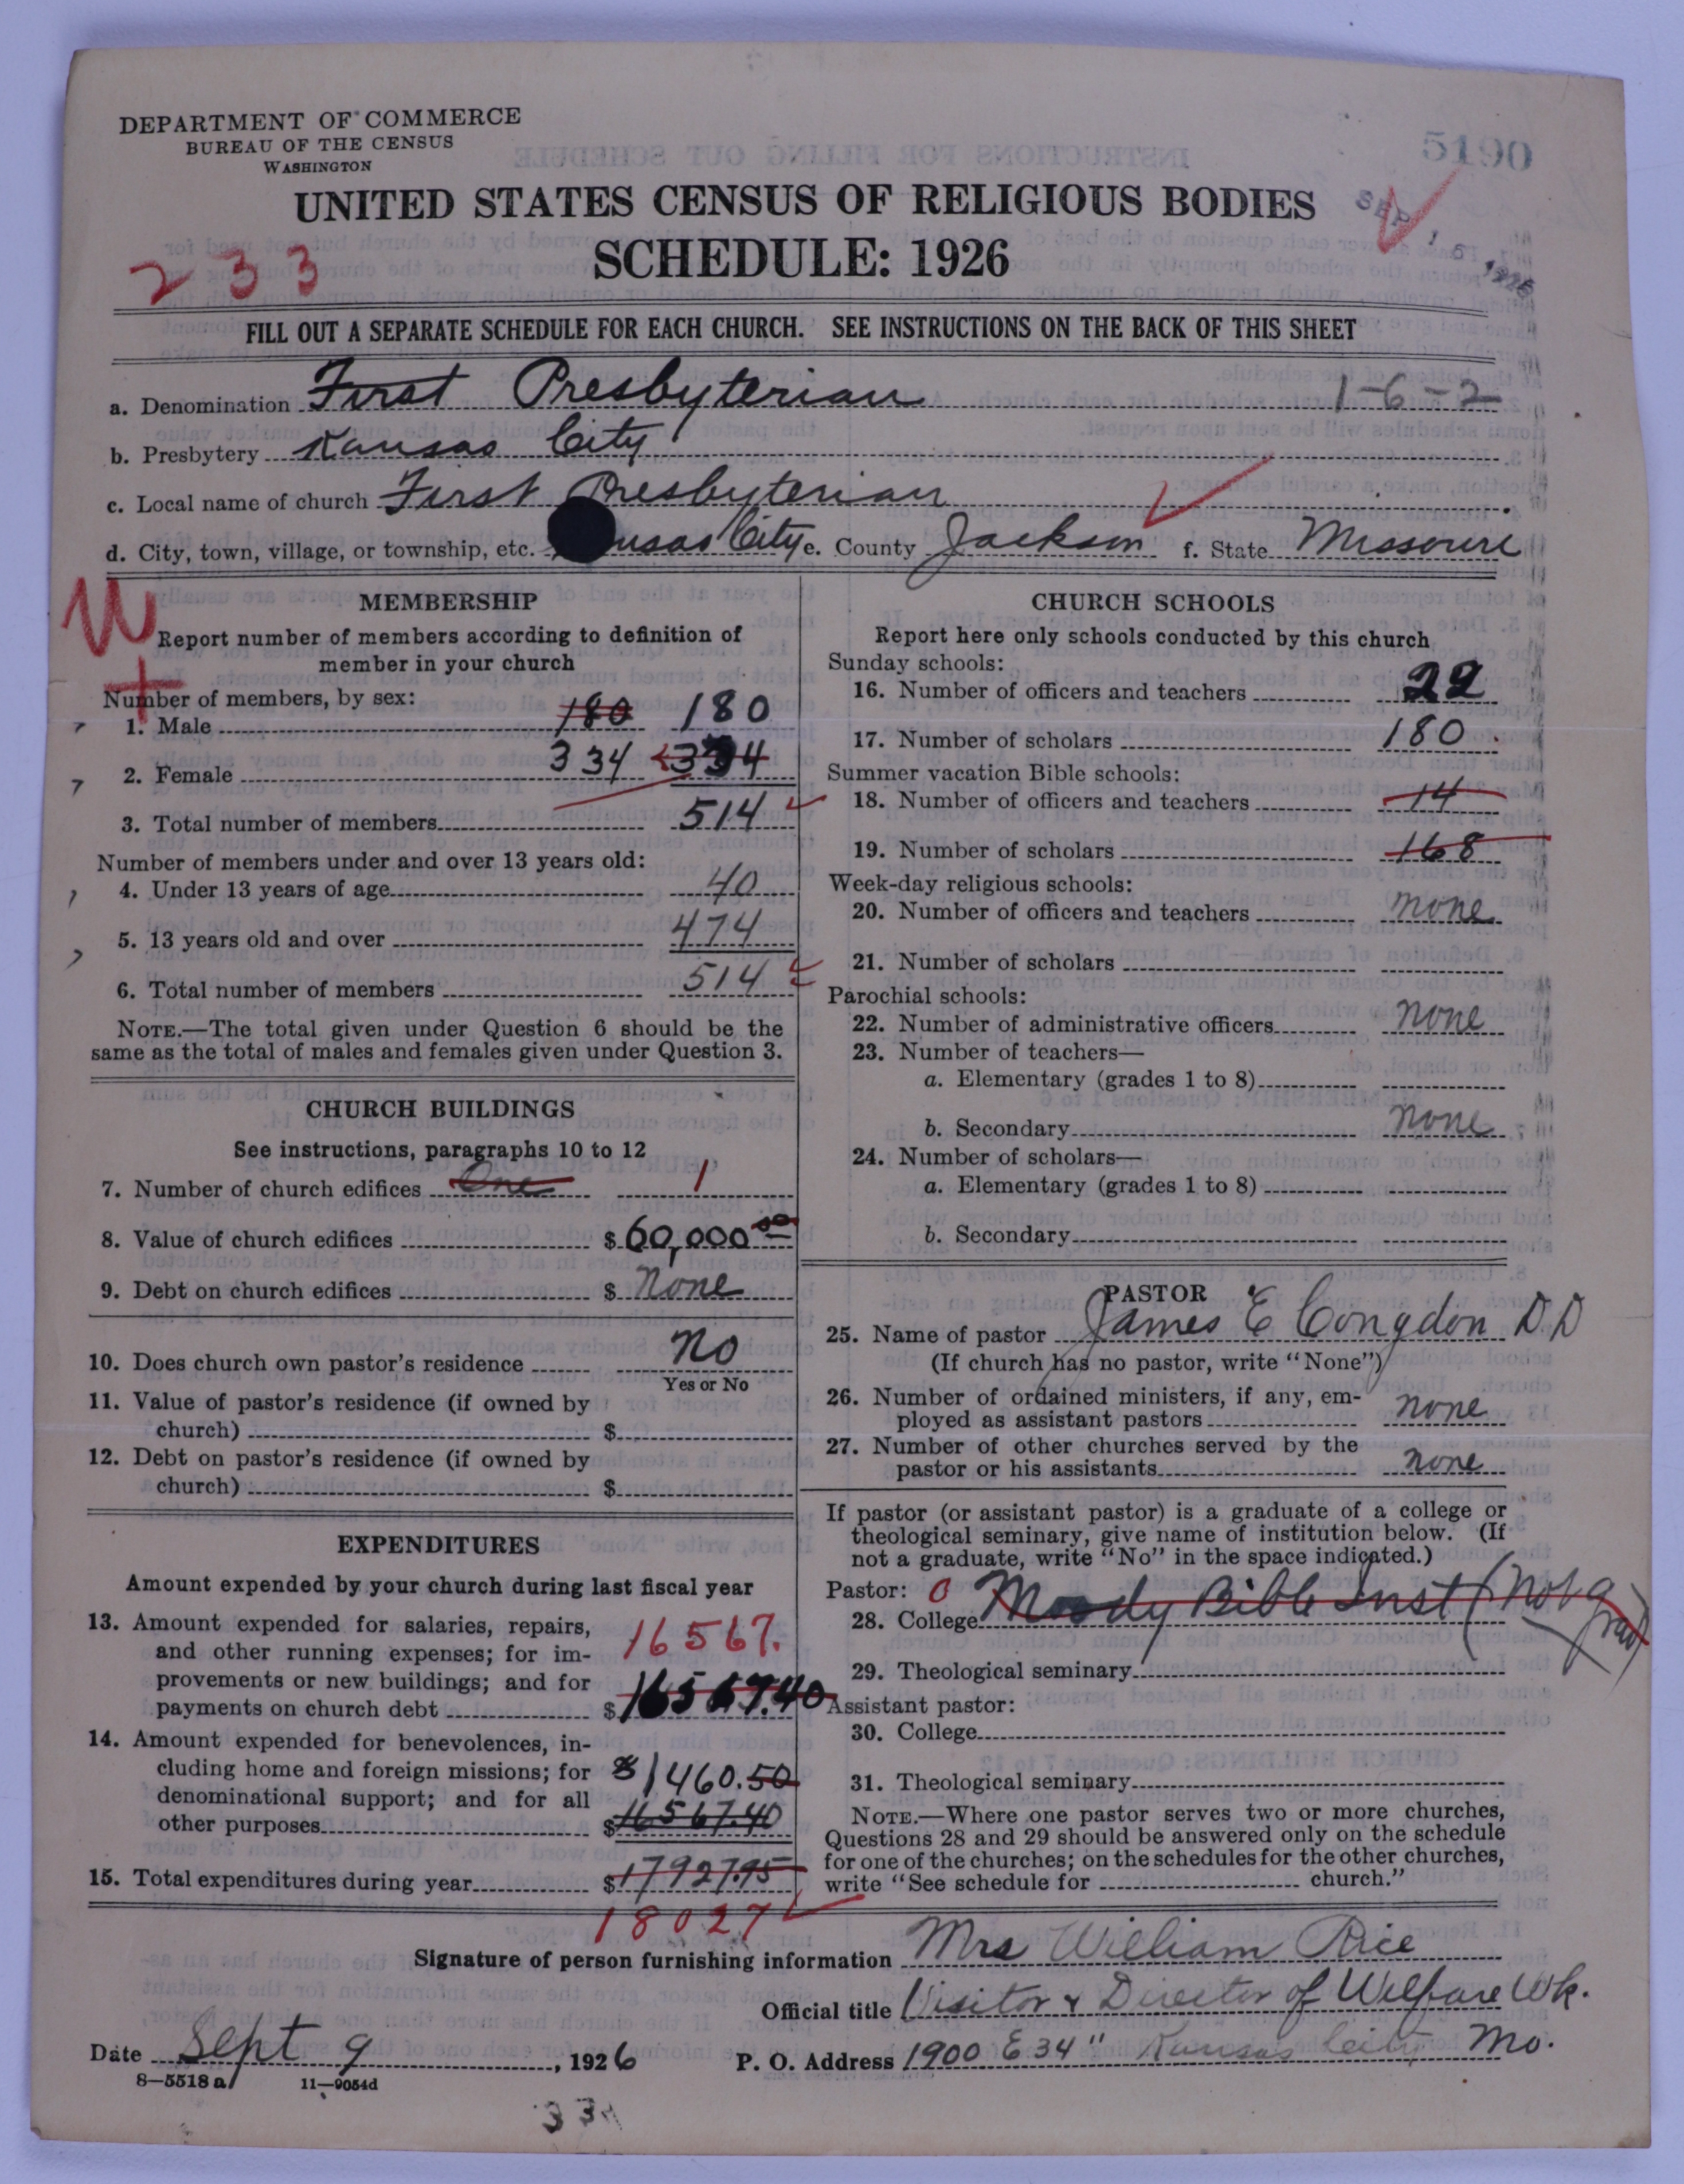 DEPARTMENT OF COMMERCE
BUREAU OF THE CENSUS
WASHINGTON
5190
UNITED STATES CENSUS OF RELIGIOUS BODIES
SEP 15 1926
SCHEDULE: 1926
233
FILL OUT A SEPARATE SCHEDULE FOR EACH CHURCH. SEE INSTRUCTIONS ON THE BACK OF THIS SHEET
a. Denomination First Presbyterian 1-6-2
b. Presbytery Kansas City
c. Local name of church First Presbyterian
d. City, town, village, or township, etc. Kansas City e. County Jackson f. State Missouri
MEMBERSHIP
Report number of members according to definition of
member in your church
Number of members, by sex:
1. Male 180 180
2. Female 334 334
3. Total number of members 514
Number of members under and over 13 years old:
4. Under 13 years of age 40
5. 13 years old and over 474
6. Total number of members 514
NOTE.—The total given under Question 6 should be the
same as the total of males and females given under Question 3.
CHURCH BUILDINGS
See instructions, paragraphs 10 to 12
7. Number of church edifices One 1
8. Value of church edifices $ 60,000 00
9. Debt on church edifices $ None
10. Does church own pastor's residence No
Yes or No
11. Value of pastor's residence (if owned by
church) $
12. Debt on pastor's residence (if owned by
church) $
EXPENDITURES
Amount expended by your church during last fiscal year
13. Amount expended for salaries, repairs,
and other running expenses; for im- 16567.
provements or new buildings; and for
payments on church debt $ 16567.40
14. Amount expended for benevolences, in-
cluding home and foreign missions; for $1460.50
denominational support; and for all
other purposes $ 16567.40
15. Total expenditures during year $ 17927.95
18027
CHURCH SCHOOLS
Report here only schools conducted by this church
Sunday schools:
16. Number of officers and teachers 22
17. Number of scholars 180
Summer vacation Bible schools:
18. Number of officers and teachers 14
19. Number of scholars 168
Week-day religious schools:
20. Number of officers and teachers none
21. Number of scholars
Parochial schools:
22. Number of administrative officers none
23. Number of teachers—
a. Elementary (grades 1 to 8)
b. Secondary none
24. Number of scholars—
a. Elementary (grades 1 to 8)
b. Secondary
PASTOR
25. Name of pastor James E Congdon D D
(If church has no pastor, write "None")
26. Number of ordained ministers, if any, em-
ployed as assistant pastors none
27. Number of other churches served by the
pastor or his assistants none
If pastor (or assistant pastor) is a graduate of a college or
theological seminary, give name of institution below. (If
not a graduate, write "No" in the space indicated.)
Pastor: 0
28. College Moody Bible Inst (Not a grad)
29. Theological seminary
Assistant pastor:
30. College
31. Theological seminary
NOTE.—Where one pastor serves two or more churches,
Questions 28 and 29 should be answered only on the schedule
for one of the churches; on the schedules for the other churches,
write "See schedule for church."
Signature of person furnishing information Mrs William Rice
Official title Visitor & Director of Welfare Wk.
Date Sept 9, 1926 P. O. Address 1900 E 34" Kansas City Mo.
8—5518 a 11—9054d